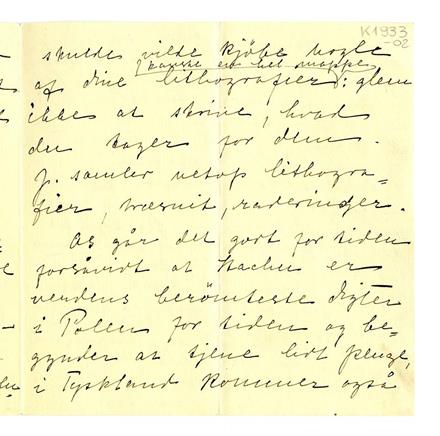 K1933
-02
skulde vilde kjöbe nogle
(kanske en hel mappe)
af dine lithografier: glem
ikke at skrive, hvad
du tager for dem.
J. samler netop lithogra=
fier, træsnit, raderinger.
Os går det godt for tiden
forsåvidt at Stachu er
verdens berömteste digter
i Polen for tiden og be=
gynder at tjene lidt penge,
i Tyskland kommer også